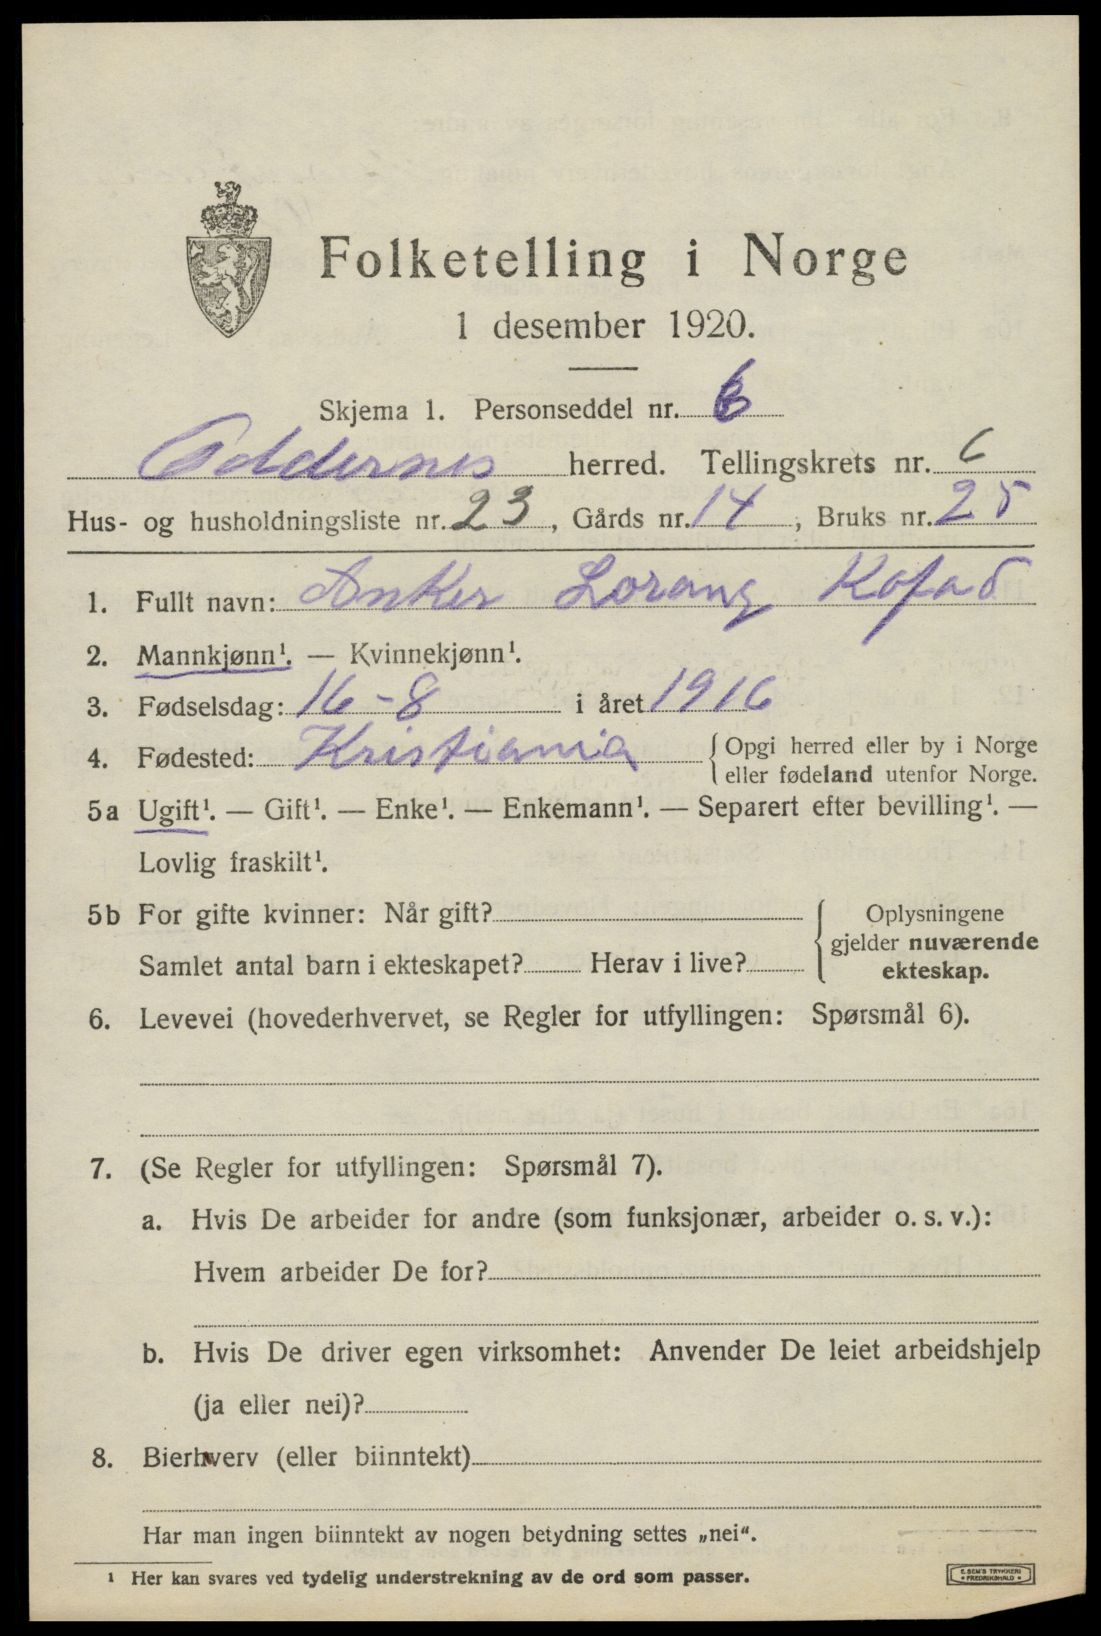 Folketelling i Norge
1 desember 1920.
Skjema 1. Personseddel nr. 6
Oddernes herred. Tellingskrets nr. 6
Hus- og husholdningsliste nr. 23, Gårds nr. 14, Bruks nr. 25
1. Fullt navn: Anker Lorang Kofad
2. Mannkjønn¹. — Kvinnekjønn¹.
3. Fødselsdag: 16-8 i året 1916
4. Fødested: Kristiania {Opgi herred eller by i Norge
eller fødeland utenfor Norge.
5a Ugift¹. — Gift¹. — Enke¹. — Enkemann¹. — Separert efter bevilling¹. —
Lovlig fraskilt¹.
5b For gifte kvinner: Når gift?
Samlet antal barn i ekteskapet? Herav i live?
{Oplysningene
gjelder nuværende
ekteskap.
6. Levevei (hovederhvervet, se Regler for utfyllingen: Spørsmål 6).
7. (Se Regler for utfyllingen: Spørsmål 7).
a. Hvis De arbeider for andre (som funksjonær, arbeider o. s. v.):
Hvem arbeider De for?
b. Hvis De driver egen virksomhet: Anvender De leiet arbeidshjelp
(ja eller nei)?
8. Bierhverv (eller biinntekt)
Har man ingen biinntekt av nogen betydning settes „nei“.
¹ Her kan svares ved tydelig understrekning av de ord som passer.
E. SEM'S TRYKKERI
FREDRIKSHALD